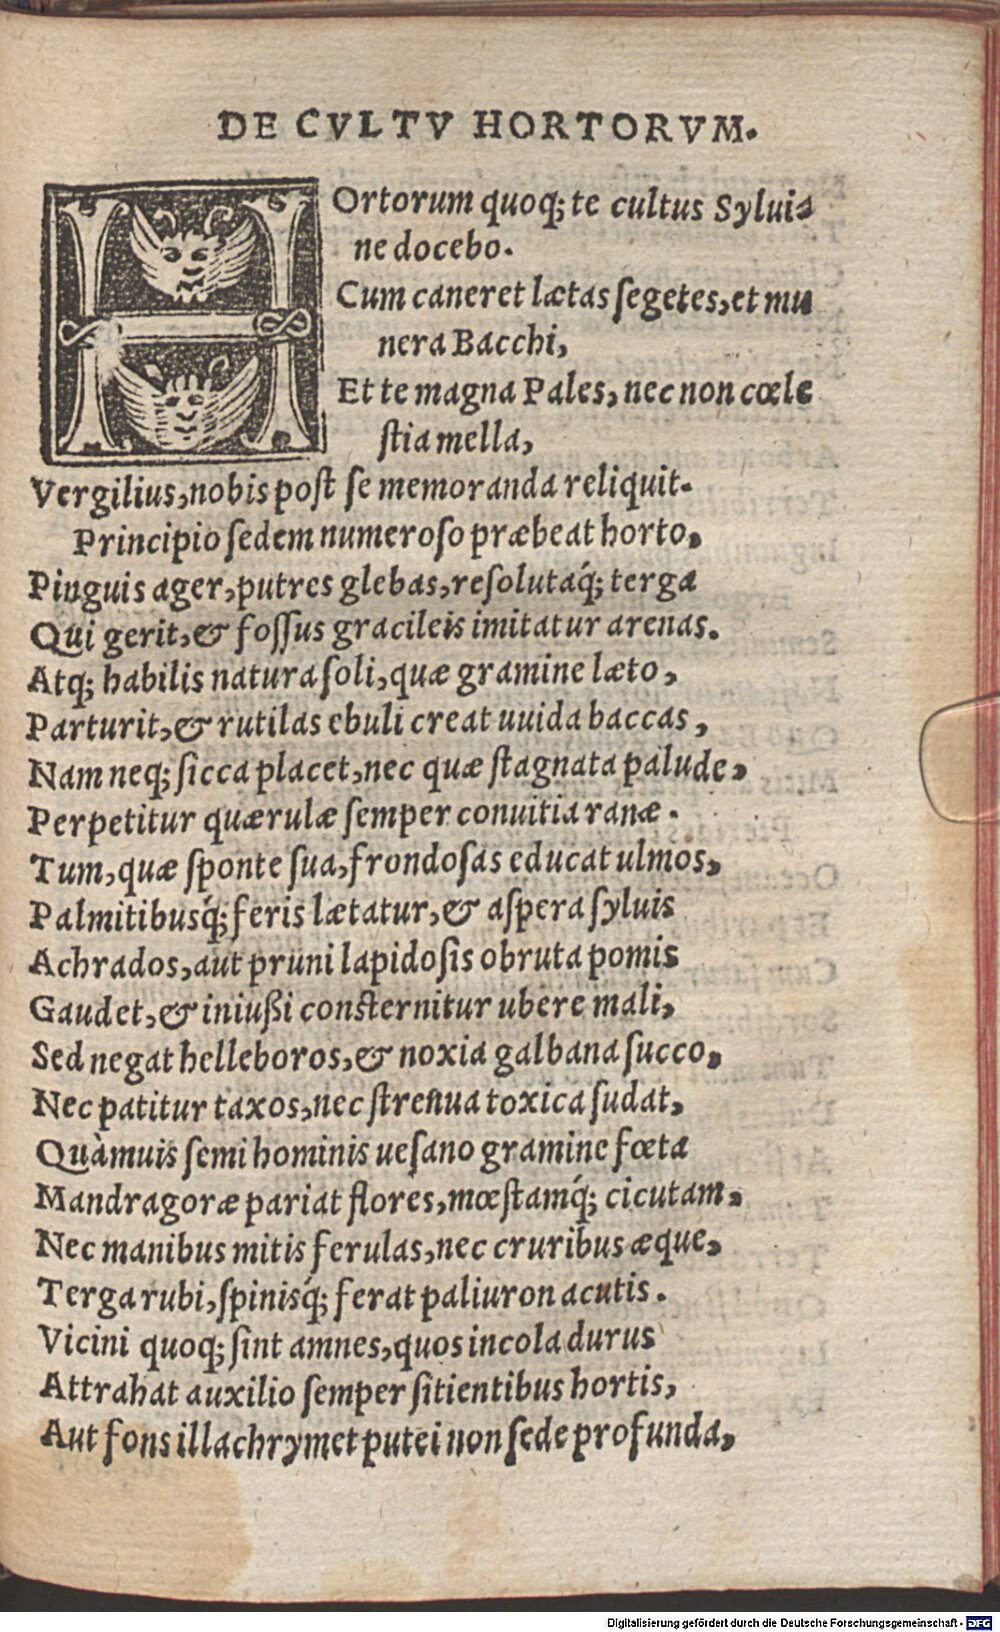 DE CVLTV HORTORVM.
HOrtorum quoq; te cultus Syluia
ne docebo.
Cum caneret lætas ſegetes, et mu
nera Bacchi,
Et te magna Pales, nec non cœle
ſtia mella,
Vergilius, nobis poſt ſe memoranda reliquit.
Principio ſedem numeroſo præbeat horto,
Pinguis ager, putres glebas, reſolutaq́; terga
Qui gerit, & foſſus gracileis imitatur arenas.
Atq; habilis natura ſoli, quæ gramine læto,
Parturit, & rutilas ebuli creat uuida baccas,
Nam neq; ſicca placet, nec quæ ſtagnata palude,
Perpetitur quærulæ ſemper conuitia ranæ.
Tum, quæ ſponte ſua, frondoſas educat ulmos,
Palmitibusq́; feris lætatur, & aſpera ſyluis
Achrados, aut pruni lapidoſis obruta pomis
Gaudet, & iniußi conſternitur ubere mali,
Sed negat helleboros, & noxia galbana ſucco,
Nec patitur taxos, nec ſtrenua toxica ſudat,
Quàmuis ſemi hominis ueſano gramine fœta
Mandragoræ pariat flores, mœſtamq́; cicutam,
Nec manibus mitis ferulas, nec cruribus æque,
Terga rubi, ſpinisq́; ferat paliuron acutis.
Vicini quoq; ſint amnes, quos incola durus
Attrahat auxilio ſemper ſitientibus hortis,
Aut fons illachrymet putei non ſede profunda,
Digitalisierung gefördert durch die Deutsche Forschungsgemeinschaft - DFG